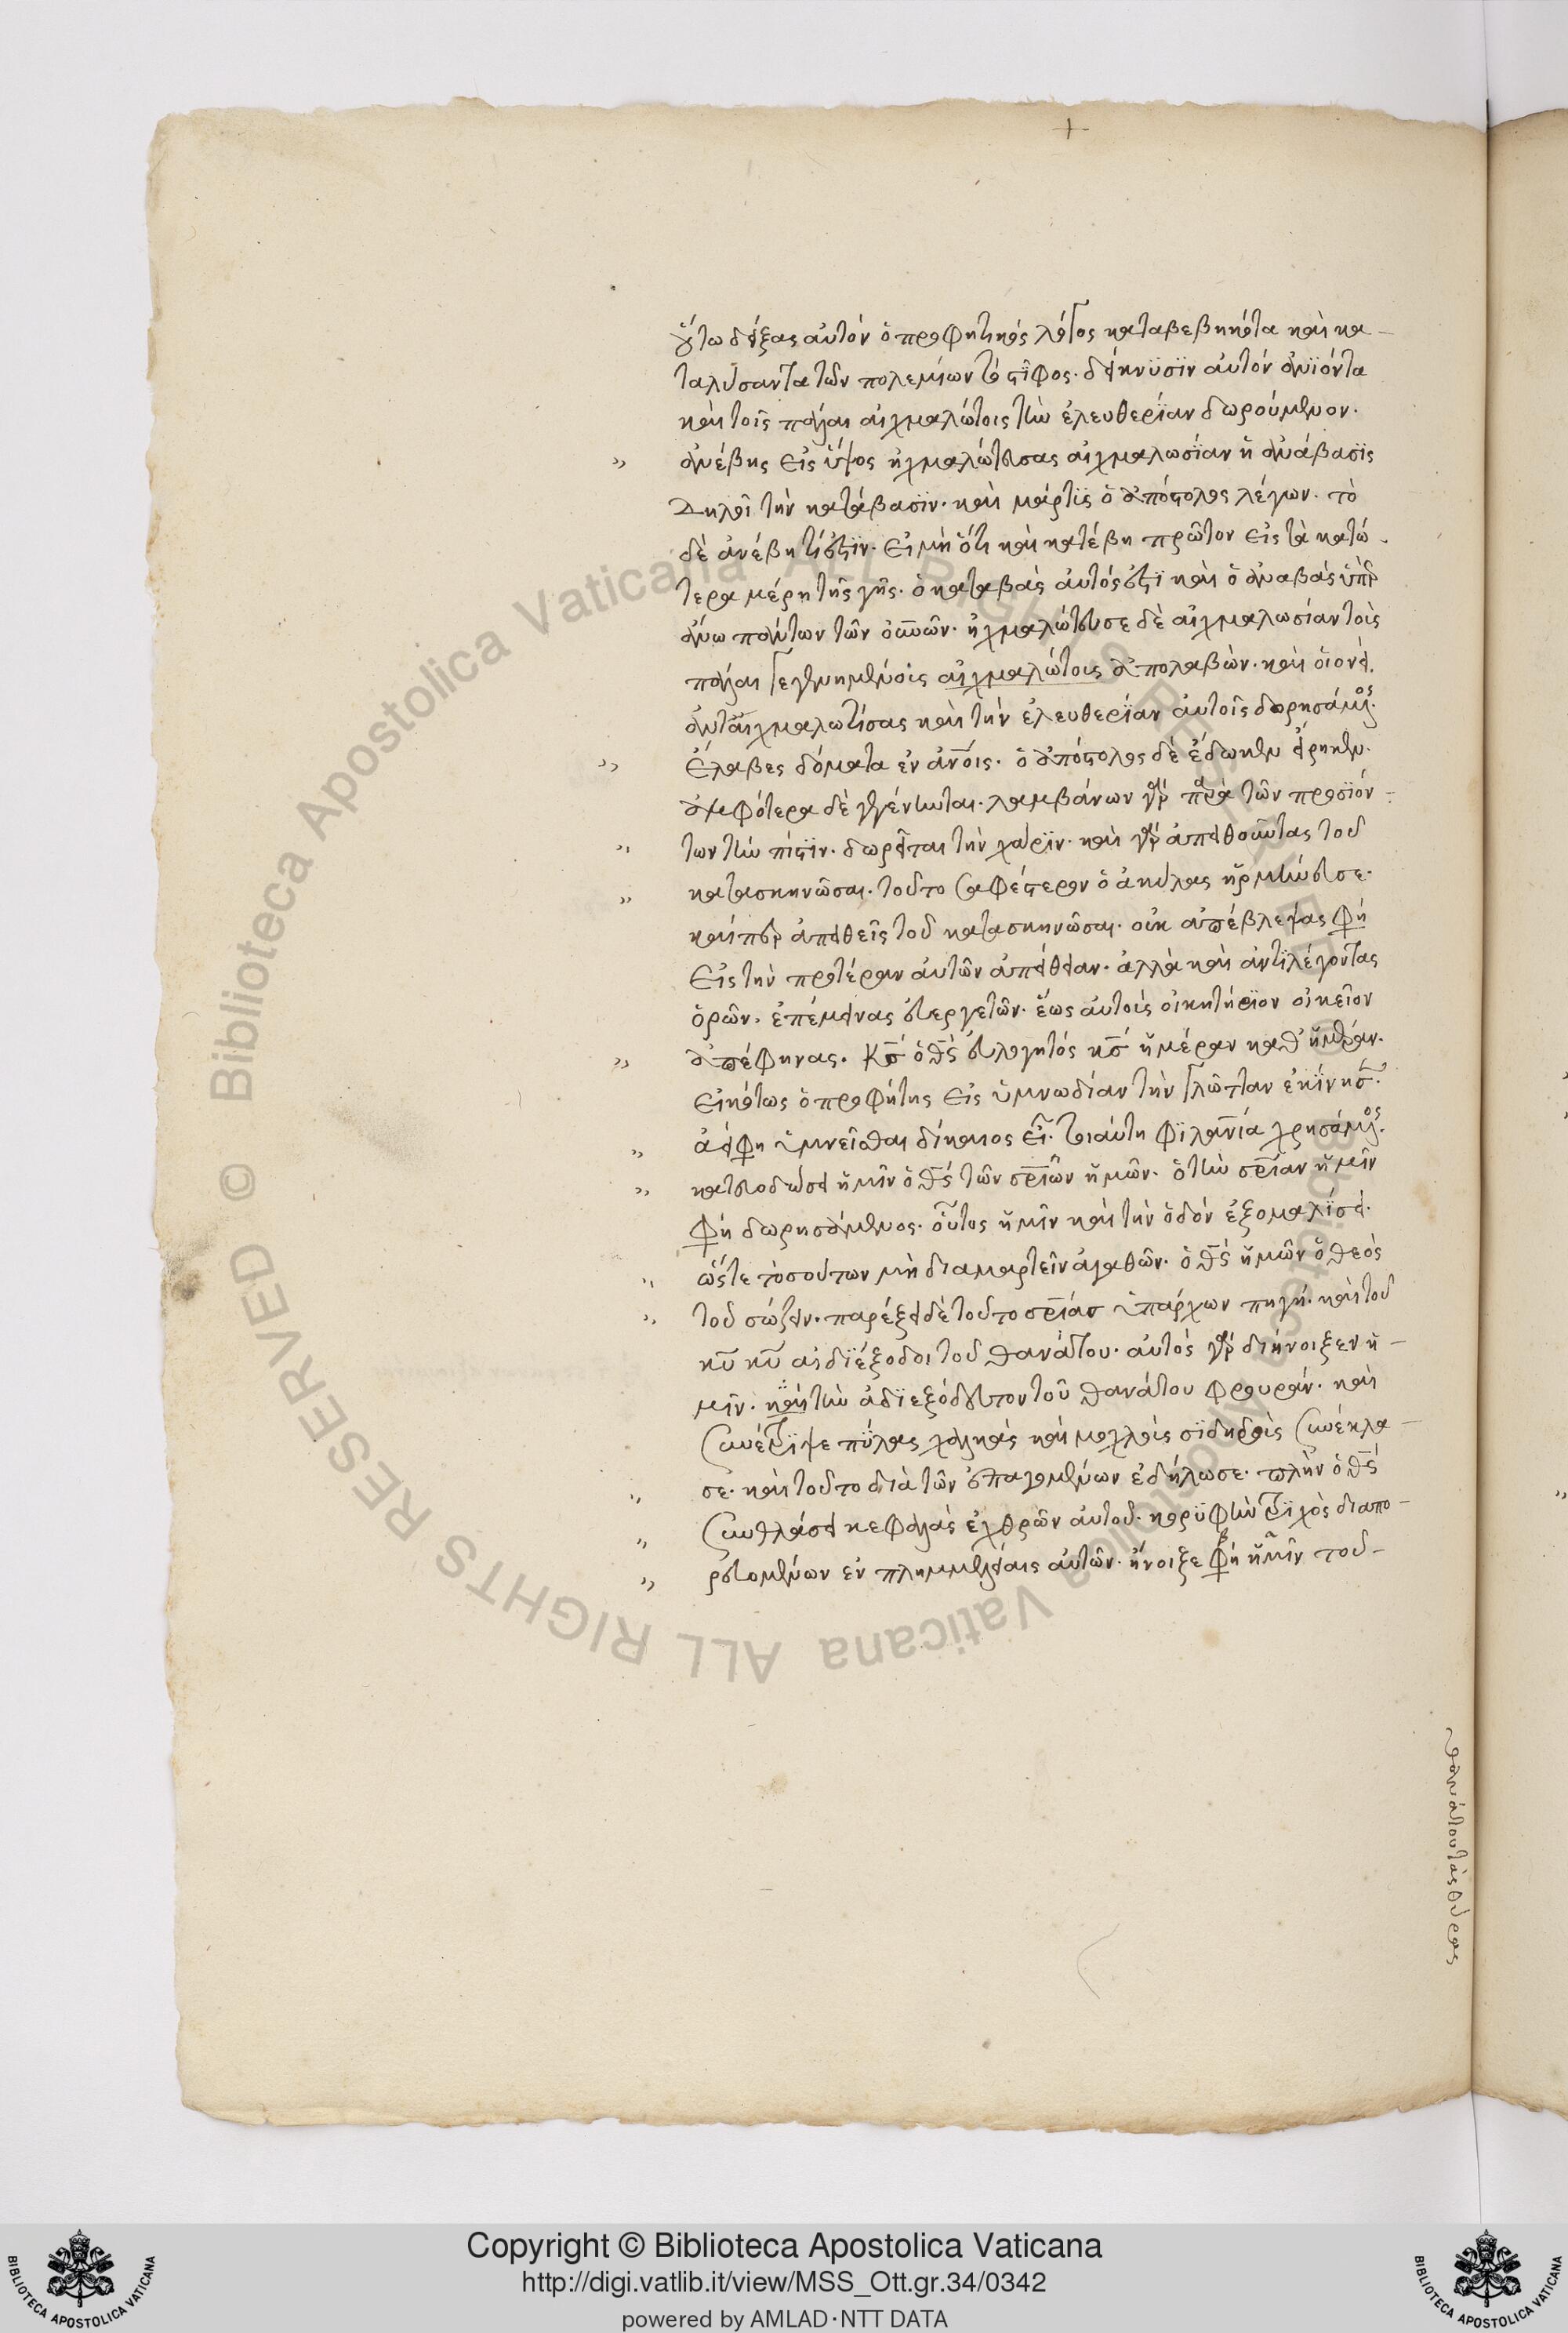 +
οὕτω δείξας αὐτόν ὁ προφητικός λόγος καταβεβηκότα καὶ κα-
ταλύσαντα τῶν πολεμίων τὸ στῖφος. δείκνυσιν αὐτόν ἀνϊόντα
καὶ τοῖς πάλαι αἰχμαλώτοις τὴν ἐλευθερίαν δωρούμενον.
ἀνέβης εἰς ὕψος ἠχμαλώτευσας αἰχμαλωσίαν ἡ ἀνάβασις
δηλοῖ τὴν κατάβασιν. καὶ μάρτις ὁ ἀπόστολος λέγων. τὸ
δὲ ἀνέβη τί ἐστϊν. εἰ μὴ ὅτι καὶ κατέβη πρῶτον εἰς τὰ κατώ-
τερα μέρη τῆς γῆς. ὁ καταβὰς αὐτός ἐστϊ καὶ ὁ ἀναβὰς ὑπὲρ
ἄνω πάντων τῶν οὐνῶν. ἠχμαλώτευσε δὲ αἰχμαλωσίαν τοὺς
πάλαι γεγενημένοις αἰχμαλώτοις ἀπολαβών. καὶ οἱονεὶ
ἀνταιχμαλωτίσας καὶ τὴν ἐλευθερίαν αὐτοῖς δωρησάμος.
ἔλαβες δόματα ἐν ἀνοις. ὁ ἀπόστολος δὲ ἔδωκεν εἴρηκεν.
ἀμφότερα δὲ γεγένηται. λαμβάνων γὰρ παρὰ τῶν προσϊόν-
των τὴν πίστϊν. δωρεῖται τὴν χάρϊν. καὶ γὰρ ἀπειθοῦντας τοῦ
κατασκηνῶσαι. τοῦτο σαφέστερον ὁ ἀκύλας ἡρμήνευσε.
καίπερ ἀπειθεῖς τοῦ κατασκηνῶσαι. οὐκ ἀπέβλεψας φη
εἰς τὴν προτέραν αὐτῶν ἀπείθειαν. ἀλλὰ καὶ ἀντϊλέγοντας
ὁρῶν. ἐπέμεινας εὐεργετῶν. ἕως αὐτοὺς οἰκητήριον οἰκεῖον
ἀπέφηνας. Κς ὁ θς εὐλογητός κς ἡμέραν καθ' ἡμέραν.
εἰκότως ὁ προφήτης εἰς ὑμνωδίαν τὴν γλῶτταν ἐκίνησ.
ἀεί φη ὑμνεῖσθαι δίκαιος εἶ. τοιαύτη φϊλανία χρησάμος.
κατευοδώσει ἡμῖν ὁ θς τῶν σριῶν ἡμῶν. ὁ τὴν σρίαν ἡμῖν
φη δωρησάμενος. οὗτος ἡμῖν καὶ τὴν ὁδόν ἐξομαλϊσεῖ.
ὥστε τοσούτων μὴ διαμαρτεῖν ἀγαθῶν. ὁ θς ἡμῶν ὁ θεὸς
τοῦ σώζειν. παρέξει δὲ τοῦτο σρίας ὑπάρχων πηγή. καὶ τοῦ
κυ κυ αἱ δϊέξοδοι τοῦ θανάτου. αὐτὸς γὰρ διήνοιξεν ἡ-
μῖν. καὶ τὴν ἀδϊεξόδευτον τοῦ θανάτου φρουράν. καὶ
συνέτρϊψε πύλας χαλκὰς καὶ μοχλοὺς σϊδηροὺς συνέκλα-
σε. καὶ τοῦτο διὰ τῶν ἐπαγομένων ἐδήλωσε. πλὴν ὁ θς
συνθλάσει κεφαλὰς ἐχθρῶν αὐτοῦ. κορυφὴν τρϊχὸς διαπο-
ρευομένων ἐν πλημμελείαις αὐτῶν. ἤνοιξε φη ἡμῖν τοῦ-
θανάτου τὰς θύρας
Copyright © Biblioteca Apostolica Vaticana
http://digi.vatlib.it/view/MSS_Ott.gr.34/0342
powered by AMLAD·NTT DATA